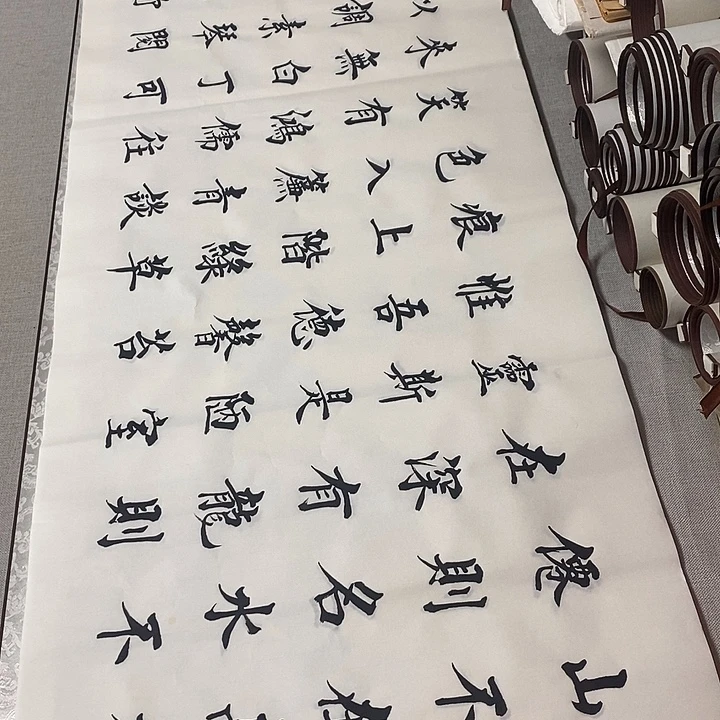 山不在
僊則名水不
在深有龍則
靈斯是陋室
惟吾德馨苔
痕上階綠草
色入簾青談
笑有鴻儒往
來無白丁可
以調素琴閱